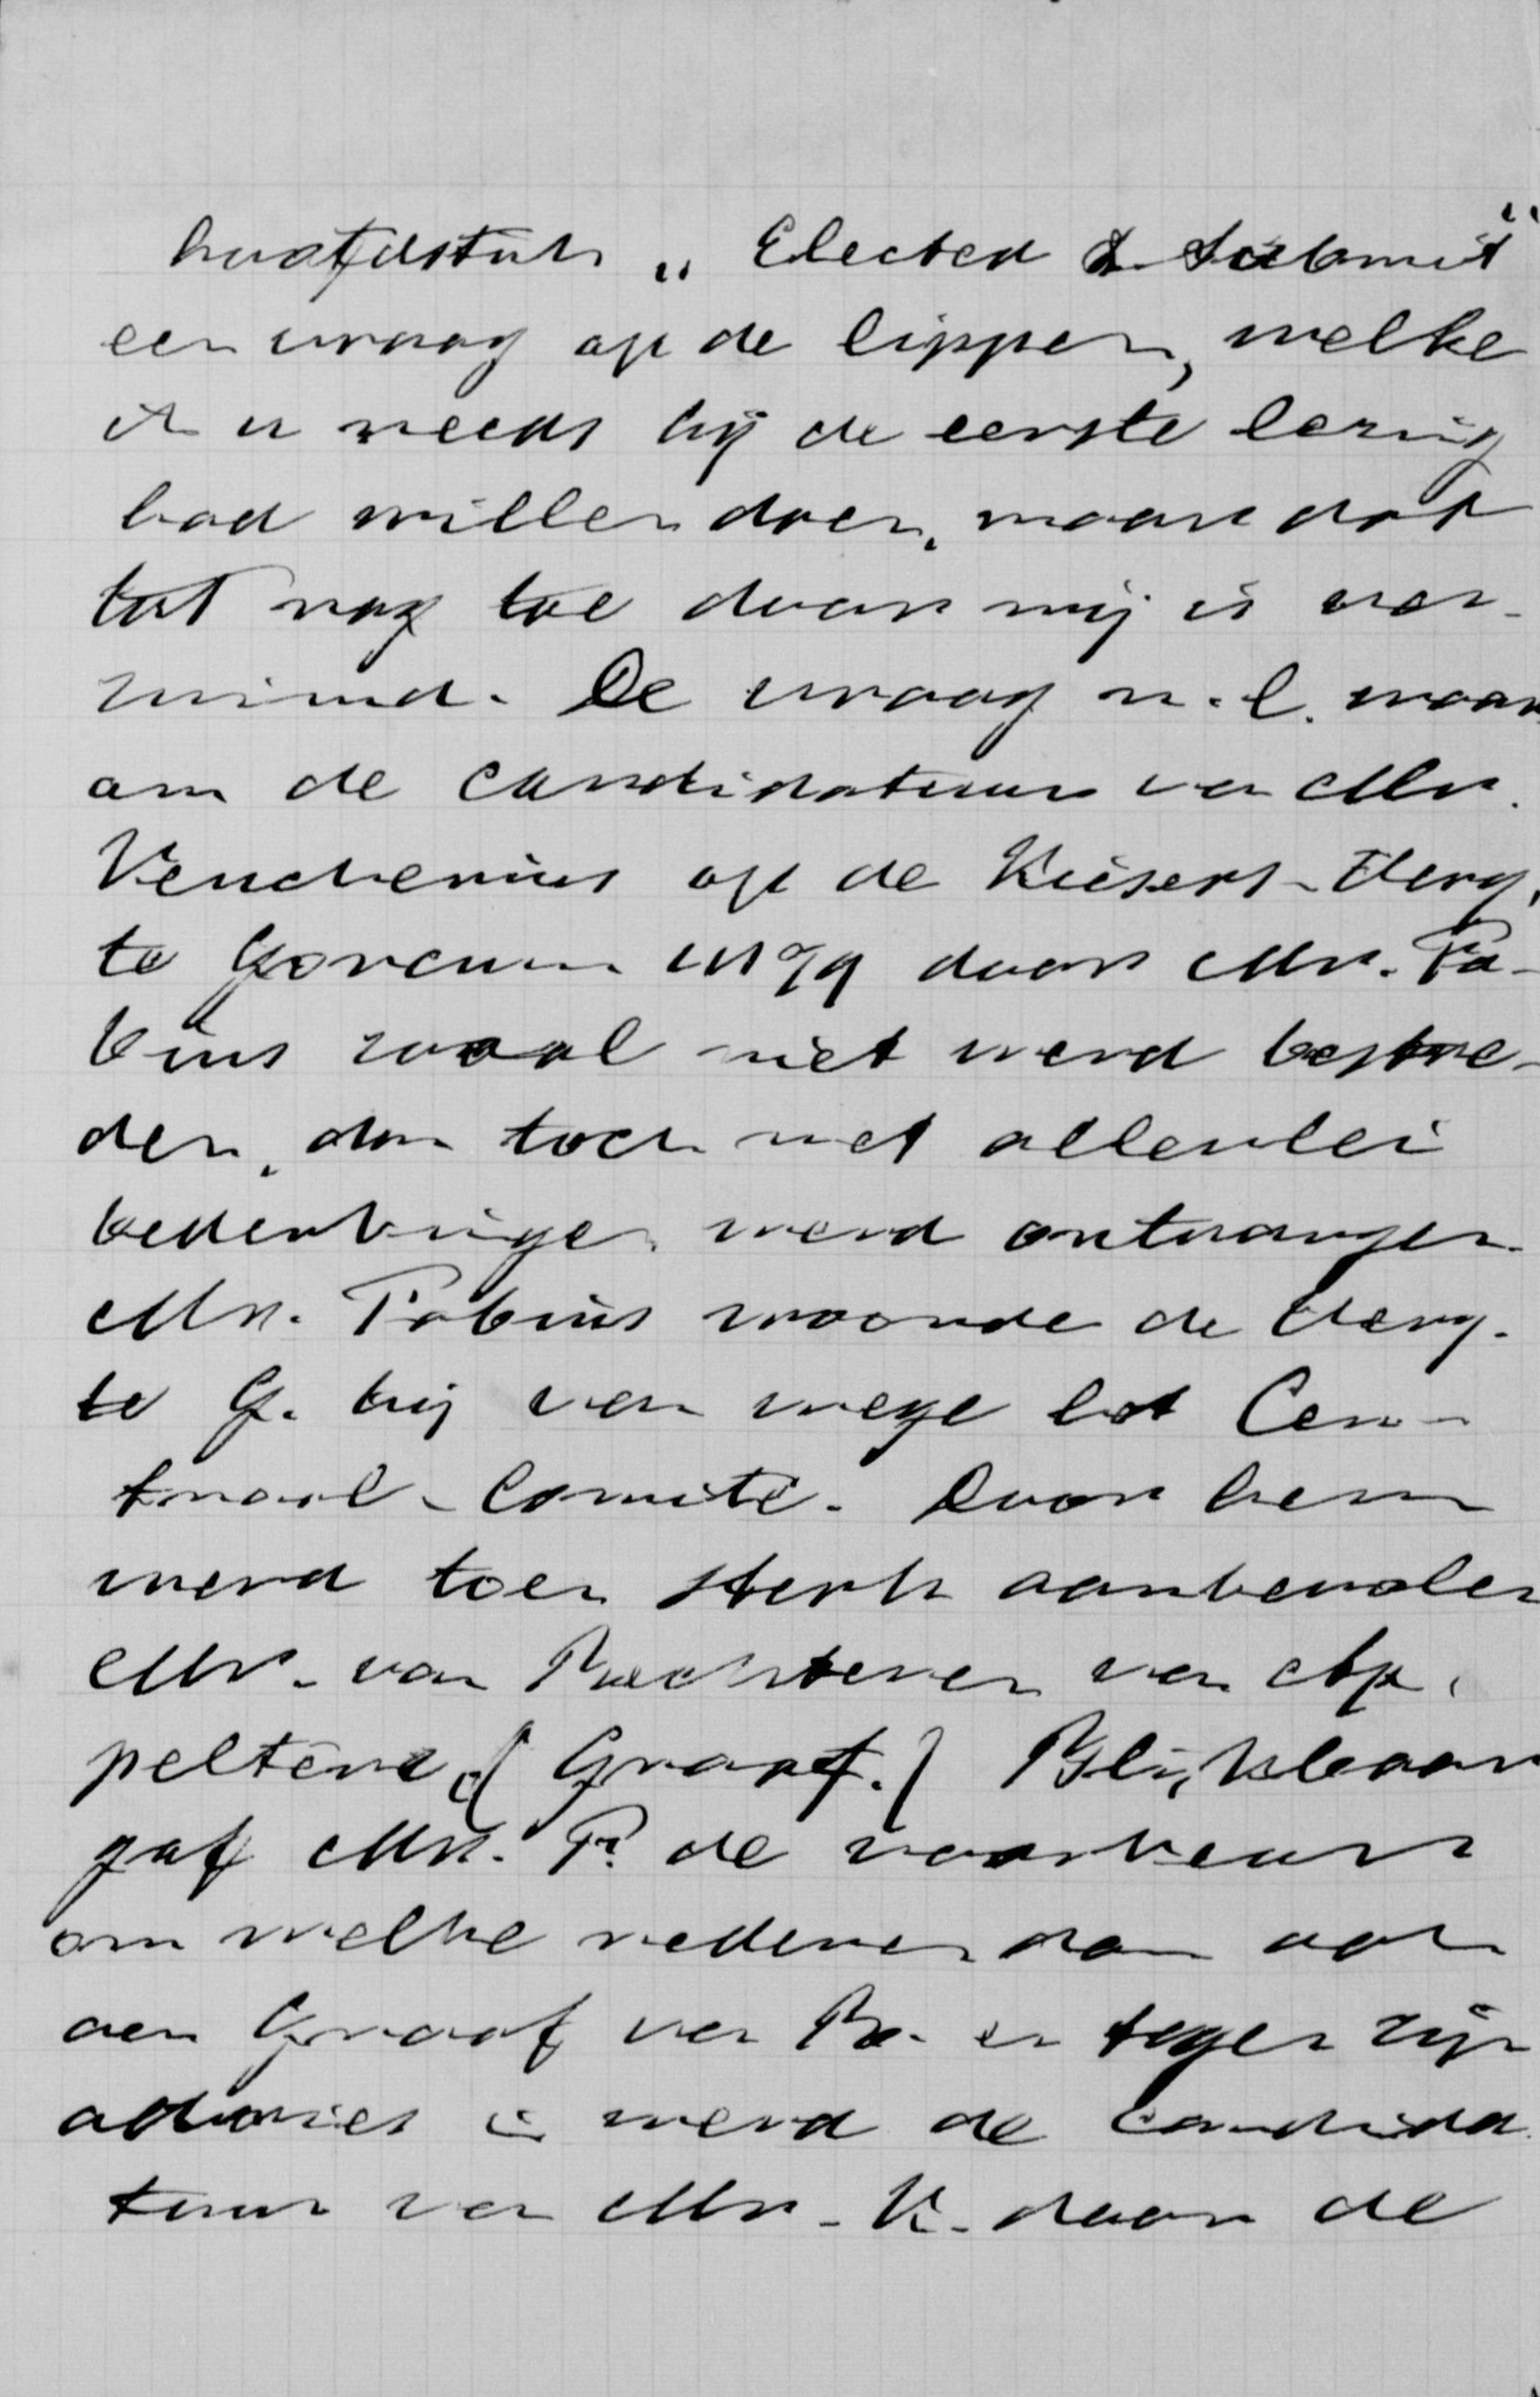 hoofdstuk „ Elected & Submit "
een vraag op de lippen, welke
ik u reeds bij de eerste lezing
had willen doen, maar dat
tot nog toe door mij is ver-
zuimd. De vraag n.l. waar
om de candidatuur van Mr.
Keuchenius op de Kiesers-Verg.
te Gorcum in '79 door Mr. Fa-
bius zooal niet werd bestre-
den, dan toch met allerlei
bedenkingen werd ontvangen.
Mr. Fabius woonde de Verg.
te G. bij van wege het Cen-
traal-Comité. Door hem
werd toen sterk aanbevolen
Mr. van Rechteren van Ap-
peltern (Graaf.) Blijkbaar
gaf Mr. F. de voorkeur
om welke redenen dan ook
aan Graaf van Re. en tegen zijn
advies in werd de candida
tuur van Mr. K. door de